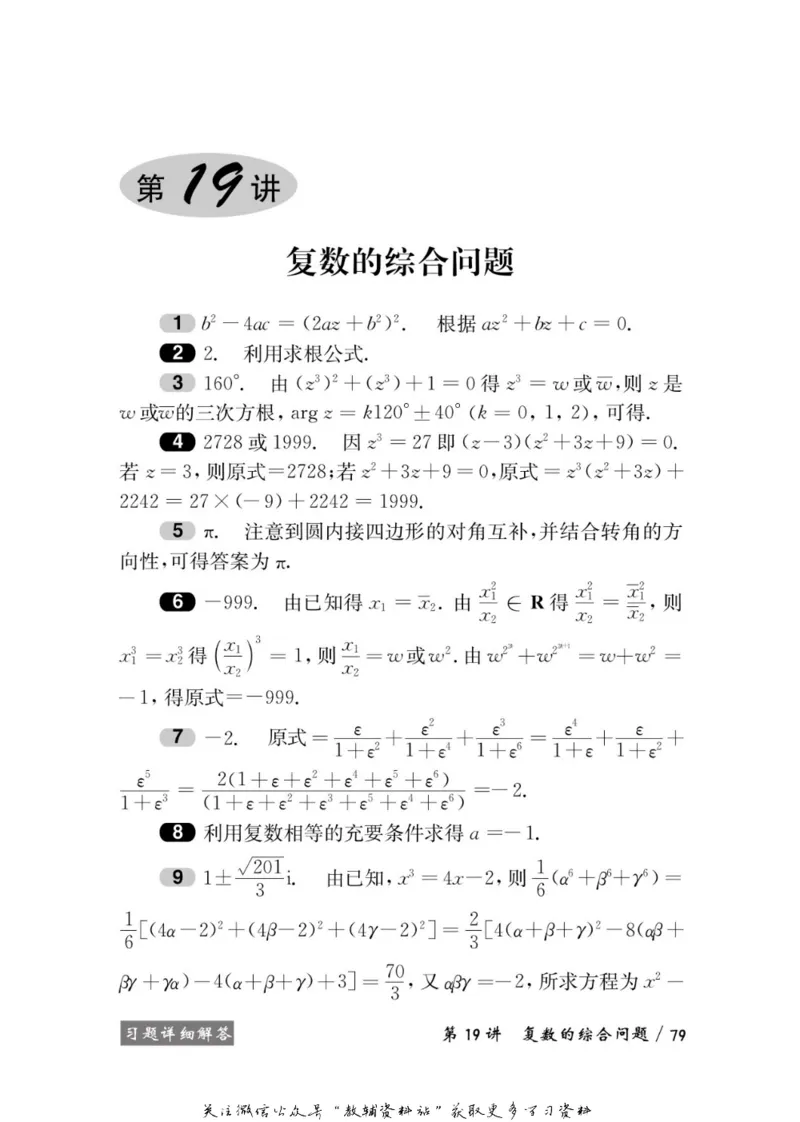 第19讲
复数的综合问题
1 b²-4ac=(2az+b²)². 根据az²+bz+c=0.
2 2. 利用求根公式.
3 160°. 由(z³)²+(z³)+1=0得z³=w或w̅,则z是
w或w̅的三次方根,arg z=k120°±40°(k=0,1,2),可得.
4 2728或1999. 因z³=27即(z-3)(z²+3z+9)=0.
若z=3,则原式=2728;若z²+3z+9=0,原式=z³(z²+3z)+
2242=27×(-9)+2242=1999.
5 π. 注意到圆内接四边形的对角互补,并结合转角的方
向性,可得答案为π.
6 -999. 由已知得x₁=x̅₂. 由x₁²/x₂∈R得x₁²/x₂=x̅₁²/x̅₂,则
x₁³=x₂³得(x₁/x₂)³=1,则x₁/x₂=w或w². 由w^(2^(2n))+w^(2^(2n+1))=w+w²=
-1,得原式=-999.
7 -2. 原式=ε/(1+ε²)+ε²/(1+ε⁴)+ε³/(1+ε⁶)=ε⁴/(1+ε)+ε/(1+ε²)+
ε⁵/(1+ε³)=2(1+ε+ε²+ε⁴+ε⁵+ε⁶)/(1+ε+ε²+ε³+ε⁵+ε⁴+ε⁶)=-2.
8 利用复数相等的充要条件求得a=-1.
9 1±√201/3 i. 由已知,x³=4x-2,则1/6(α⁶+β⁶+γ⁶)=
1/6[(4α-2)²+(4β-2)²+(4γ-2)²]=2/3[4(α+β+γ)²-8(αβ+
βγ+γα)-4(α+β+γ)+3]=70/3,又αβγ=-2,所求方程为x²-
习题详细解答 第19讲 复数的综合问题/79
关注微信公众号"教辅资料站"获取更多学习资料